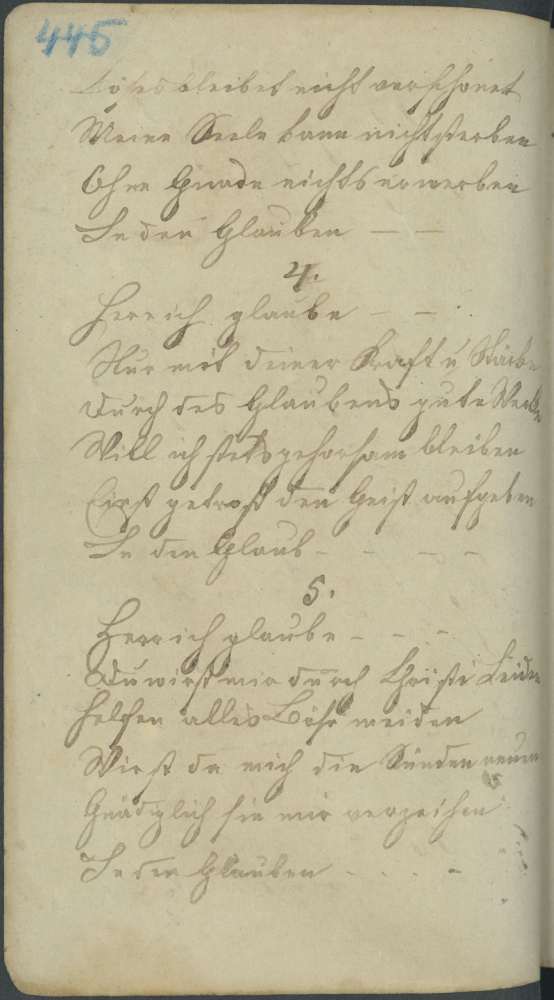 445
Böses bleibet nicht verschonet
Meine Seele kann nicht sterben
Ohne Gnade nichts erwerben
In den Glauben — —
4.
Herr ich glaube — —
Nur mit deiner Kraft u Stärke
Durch des Glaubens gute Werke
Will ich stets gehorsam bleiben
Einst getrost den Geist aufgeben
In den Glaub - - - -
5.
Herr ich glaube - - -
Du wirst mir durch Christi Leiden
Helfen alles Böse meiden
Wirst da mich die Sünden reuen
Gnädiglich sie mir verzeihen
In den Glauben - - - -